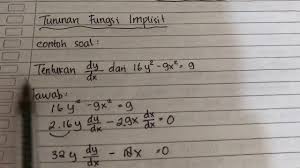 Turunan Fungsi Implisit
contoh soal:
Tentukan dy/dx dari 16y² - 9x² = 9
Jawab:
16y² - 9x² = 9
2.16y dy/dx - 2.9x dx/dx = 0
32y dy/dx - 18x = 0